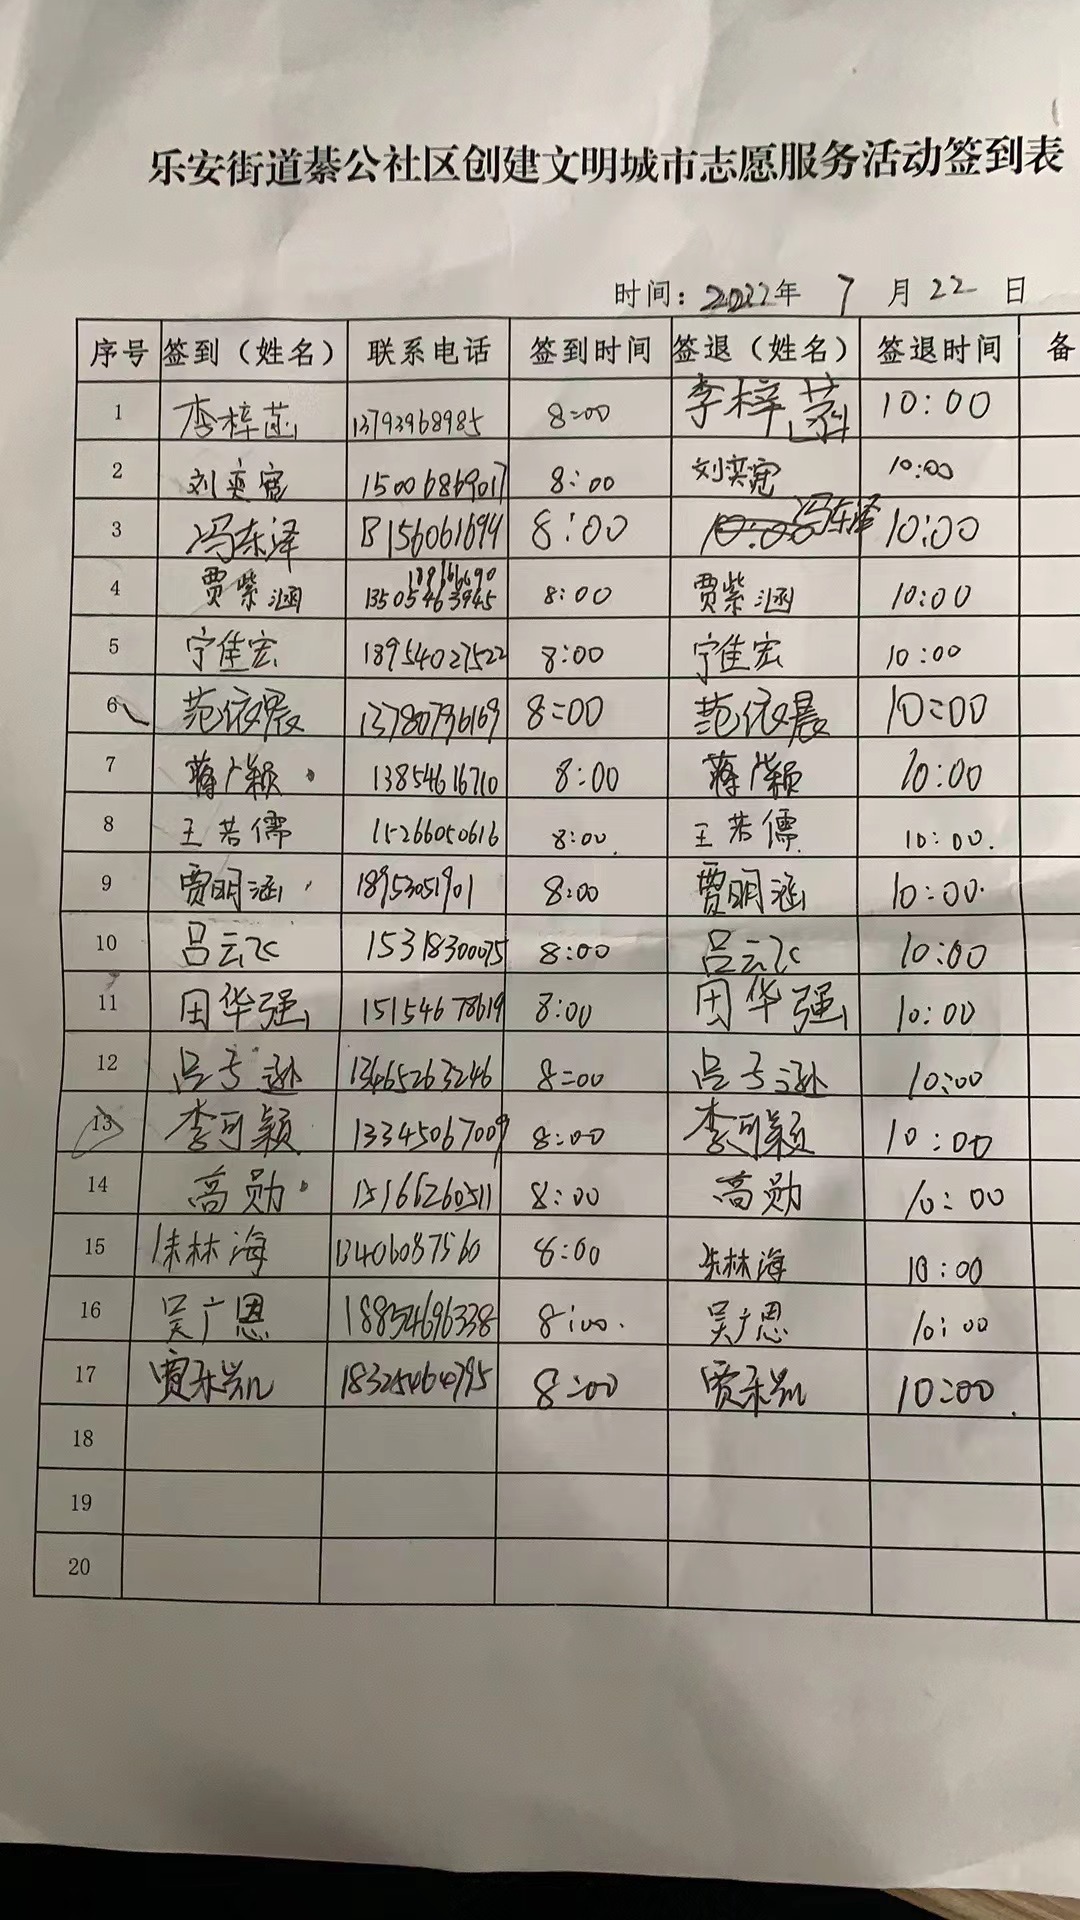 乐安街道綦公社区创建文明城市志愿服务活动签到表
时间：2022年 7 月 22 日
序号 签到（姓名） 联系电话 签到时间 签退（姓名） 签退时间 备
1 李梓菡 13793968985 8:00 李梓菡 10:00
2 刘奕宽 15006869017 8:00 刘奕宽 10:00
3 冯东泽 8:00 冯东泽 10:00
4 贾紫涵 13505463945 8:00 贾紫涵 10:00
5 宁佳宏 18954027522 8:00 宁佳宏 10:00
6 范依晨 13780796169 8:00 范依晨 10:00
7 蒋广颖 13854616710 8:00 蒋广颖 10:00
8 王若儒 15266050616 8:00 王若儒 10:00
9 贾明涵 18953051901 8:00 贾明涵 10:00
10 吕云飞 15318300075 8:00 吕云飞 10:00
11 田华强 15154678619 8:00 田华强 10:00
12 吕子逊 13465263246 8:00 吕子逊 10:00
13 李可颖 13345067009 8:00 李可颖 10:00
14 高勋 15166260511 8:00 高勋 10:00
15 朱林海 13406087560 8:00 朱林海 10:00
16 吴广恩 18854696338 8:00 吴广恩 10:00
17 18325464795 8:00 10:00
18
19
20